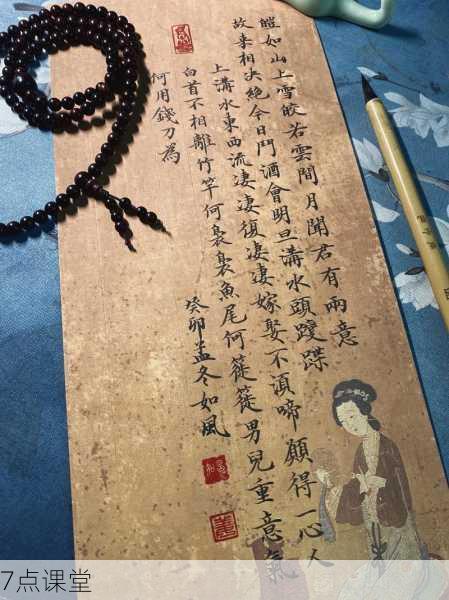 皚如山上雪皎若雲間月聞君有兩意
故来相决絕今日鬥酒會明旦溝水頭躞蹀
上溝水東西流凄凄復凄凄嫁娶不須啼願得一心人
白首不相離竹竿何裊裊魚尾何簁簁男兒重意氣
何用錢刀為
癸卯孟冬如風
7点课堂